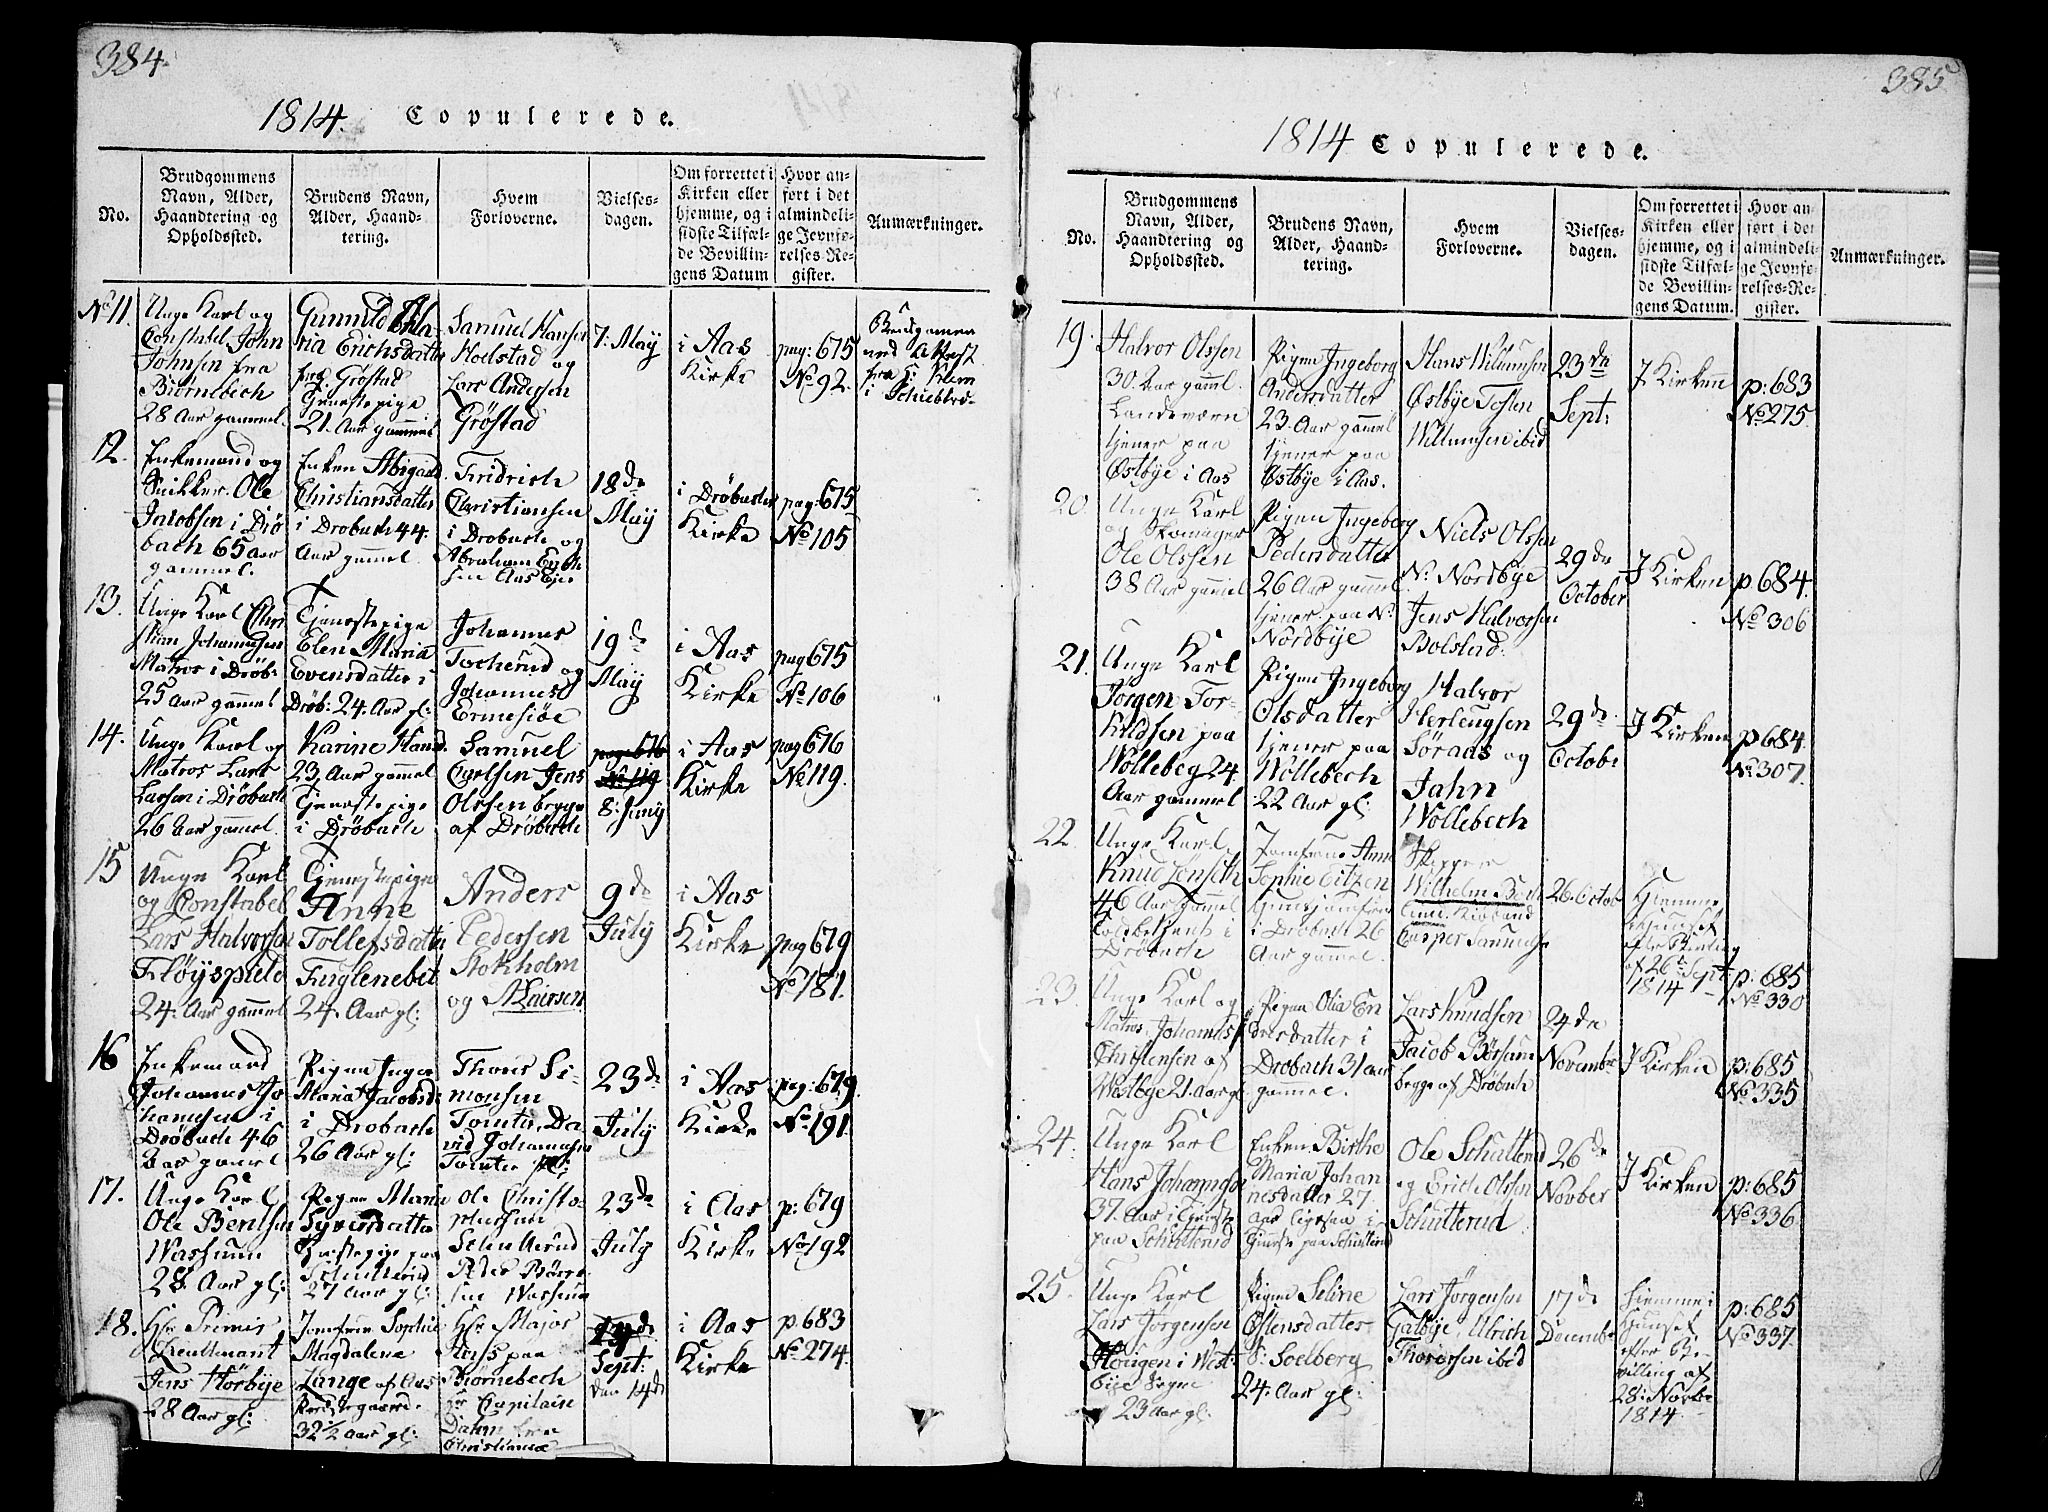 384.
1814. Copulerede.
No.
Brudgommens
Navn, Alder,
Haandtering og
Opholdssted.
Brudens Navn,
Alder, Haand-
tering.
Hvem
Forloverne.
Vielses-
dagen.
Om forrettet i
Kirken eller
hjemme, og i
sidste Tilfæl-
de Bevillin-
gens Datum
Hvor an-
ført i det
almindeli-
ge Jevnfø-
relses-Re-
gister.
Anmærkninger.
No 11.
Unge Karl og
Constabel John
Johnsen fra
Biørnebech
28 Aar gammel.
Erichsdatter
Grøstad
Tjenestepige
21. Aar gammel
Samuel Hansen
Holstad og
Lars Andersen
Grøstad
7: May
i Aas
Kirke
pag: 675
No 92.
Brudgomen
med Attest
fra
12.
Enkemand og
Snikker Ole
Jacobsen i Drö
bach 65 aar
gammel.
Enken Abigael
Christiansdatter
i Drobach 44
Aar gammel
Fridrich
Christiansen
i Drobach og
Abraham
18de
May
i Dröbach
Kirke
pag: 675
No 105
13.
Unge Karl Chri
stian Johannesen
Matros i Dröb:
25 Aar gammel
Tjenestepige
Elen Maria
Evensdatter i
Dröb: 24. Aar gl:
Johannes
og
Johannes
19de
May
i Aas
Kirke
pag 675
No 106
14.
Unge Karl og
Matros Lars
Larsen i Dröbach
26 Aar gammel.
Karine Hansd.
23 Aar gammel
Tjenestepige
i Dröbach
Samuel
Carlsen Jens
Olssen begge
af Dröbach
pag 676
No 119
8: Juny
i Aas
Kirke
pag 676
No 119.
15
Unge Karl
og Constabel
Lars Halvorsen
Fløyspield
24: Aar gammel
Tjenestepige
Anne
Tollefsdatter
Fuglenebet
24. Aar gl:
Anders
Pedersen
Stokholm
og
9de
July
i Aas
Kirke
pag 679
No 181.
16
Enkemand
Johannes Jo
hannesen i
Dröbach 46
Aar gamel
Pigen Inger
Maria Jacobsd:
i Drobach
26 Aar gl:
Thores Si-
monsen
Tomter, Da-
vid Johannesen
Tomter
23de
July
i Aas
Kirke
pag: 679.
No 191.
17.
Unge Karl
Ole Bentsen
Wassum
28. Aar gl:
Pigen Maria
Syversdatter
Tjenestepige paa
27 Aar gl:
Ole Christo-
phersen
Schutterud
Peder
Wassum
23de
July
i Aas
Kirke
p: 679
No 192
18.
Hr. Premier
Lieutenant
Jens Hörbye
28 Aar gl:
Jomfrue Sophie
Magdalena
Lange af Aas
Præstegaard
32 1/2 Aar gl:
Hr. Major
Huss paa
Biørnebech
Hr Capitain
Dahm fra
Christiania
Sept:
den 14de
i Aas
Kirke
p: 683
No 274.
385
1814 Copulerede.
No.
Brudgommens
Navn, Alder,
Haandtering og
Opholdssted.
Brudens Navn,
Alder, Haand-
tering.
Hvem
Forloverne.
Vielses-
dagen.
Om forrettet i
Kirken eller
hjemme, og i
sidste Tilfæl-
de Bevillin-
gens Datum.
Hvor an-
ført i det
almindeli-
ge Jevnfø-
relses-Re-
gister.
Anmærkninger.
19.
Halvor Olssen
30. Aar gamml.
Landeværn
tjener paa
Østbye i Aas
Pigen Ingeborg
Andersdatter
23. Aar gammel
tjener paa
Østbye i Aas.
Hans Willumsen
Østbye
Willumsen ibid
23de
Sept:
J Kirken
p: 683
No 275.
20.
Unge Karl
og Skomager
Ole Olssen
38 Aar gamel
Pigen Ingeborg
Pedersdatter
26 Aar gammel
tjener paa N:
Nordbye
Niels Olssen
N: Nordbye
Jens Halvorsen
Bolstad.
29de
October
J Kirken
p 684.
No 306
21.
Unge Karl
Jörgen Tor-
kildsen paa
Wölleberg 24.
Aar gammel
Pigen Ingeborg
Olsdatter
tjener paa
Wöllebech
22 Aar gl:
Halvor
Herleugsen
Söraas og
Jahn
Wöllebech
29de
Octobr
J Kirken
p 684.
No 307.
22.
Unge Karl
Knud
46 Aar gammel
i
Dröbach
Jomfrue Anne
Sophie Eitzen
i Dröbach 26
Aar gammel.
Skipper
Wilhelm
Casper
26. Octob
Hjemme
i Huuset
efter Bevilling
af 26 Sept
1814
p: 685
No 330
23.
Unge Karl og
Matros, Johannes
Christensen af
Westbye 21. aar gl.
Pigen Olia En
dresdatter i
Drobach 31 aar
gammel.
Lars Knudsen
Jacob Börsum
begge af Dröbach
24de
Novembr
J Kirken
p: 685
No 335
24.
Unge Karl
Hans Johannesen
37. Aar i Tjeneste
paa Schutterud
Enken Birthe
Maria Johan
nesdatter 27.
Aar
Tjeneste paa Schutterud
Ole Schutterud
og Erich Olssen
Schutterud.
26de
Novber
J Kirken
p: 685
No 336
25.
Unge Karl
Lars Jörgensen
Hougen i West-
bye Sogn
23 Aar gl:
Pigen Seline
Östensdatter
S: Soelberg
24: Aar gl:
Lars Jörgensen
Galbye, Ulrich
Thoresen ibid
17de
Decembr
hiemme i
Huuset
efter Be-
villing af
28: Novbr
1814.
p: 685
No 337